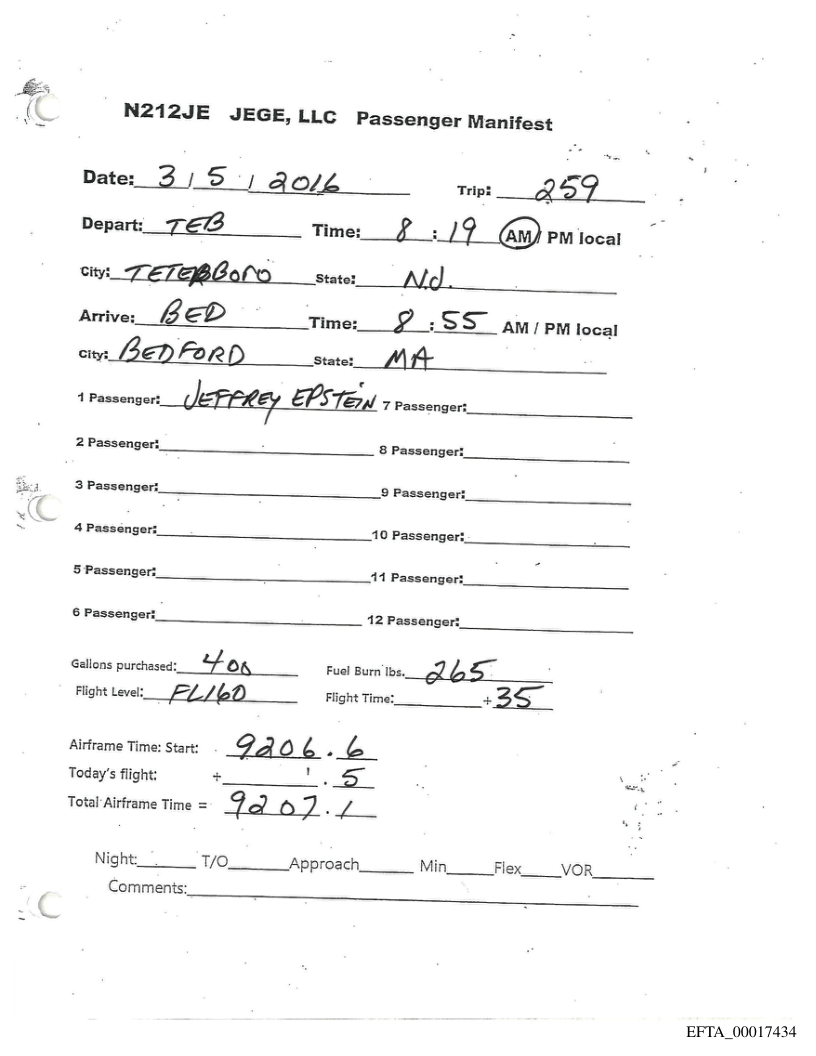 N212JE JEGE, LLC Passenger Manifest
Date: 3 / 5 / 2016 Trip: 259
Depart: TEB Time: 8 : 19 AM / PM local
City: TETERBORO State: NJ.
Arrive: BED Time: 8 : 55 AM / PM local
City: BEDFORD State: MA
1 Passenger: JEFFREY EPSTEIN 7 Passenger:
2 Passenger: 8 Passenger:
3 Passenger: 9 Passenger:
4 Passenger: 10 Passenger:
5 Passenger: 11 Passenger:
6 Passenger: 12 Passenger:
Gallons purchased: 400 Fuel Burn lbs. 265
Flight Level: FL160 Flight Time: + 35
Airframe Time: Start: 9206.6
Today's flight: + .5
Total Airframe Time = 9207.1
Night: T/O Approach Min Flex VOR
Comments:
EFTA_00017434